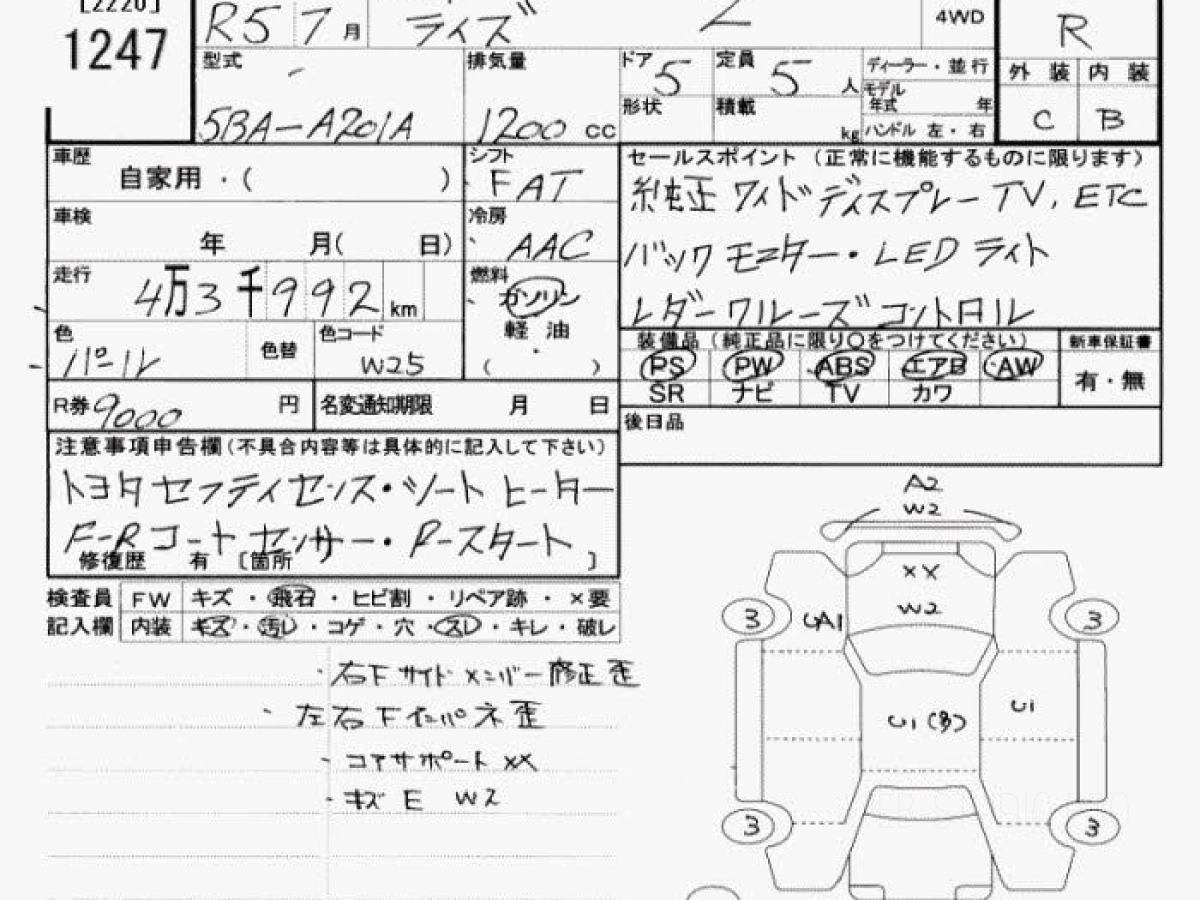 [2220]
1247
R5 7月 ライズ Z 4WD R
型式 排気量 ドア 5 定員 5 人 ディーラー・並行 外装 内装
5BA-A201A 1200 cc 形状 積載 kg モデル年式 年 C B
ハンドル 左・右
車歴 自家用・( ) シフト FAT セールスポイント (正常に機能するものに限ります)
純正ワイドディスプレーTV, ETC
車検 年 月( 日) 冷房 AAC
バックモニター・LEDライト
走行 4万3千992km 燃料 ガソリン
軽油
( )
レダークルーズコントロル
色 パール 色替 色コード W25
装備品 (純正品に限り〇をつけてください) 新車保証書
PS PW ABS エアB AW 有・無
SR ナビ TV カワ
R券 9000 円 名変通知期限 月 日 後日品
注意事項申告欄(不具合内容等は具体的に記入して下さい)
トヨタセフティセンス・シートヒーター
F-Rコートセンサー・P-スタート
修復歴 有 〔箇所 〕
検査員 FW キズ・飛石・ヒビ割・リペア跡・×要
記入欄 内装 キズ・汚レ・コゲ・穴・スレ・キレ・破レ
・右Fサイドメンバー修正歪
・左右Fインパネ歪
・コアサポート XX
・キズE W2
A2
W2
XX
W2
3 UA1 3
U1(多) U1
3 3